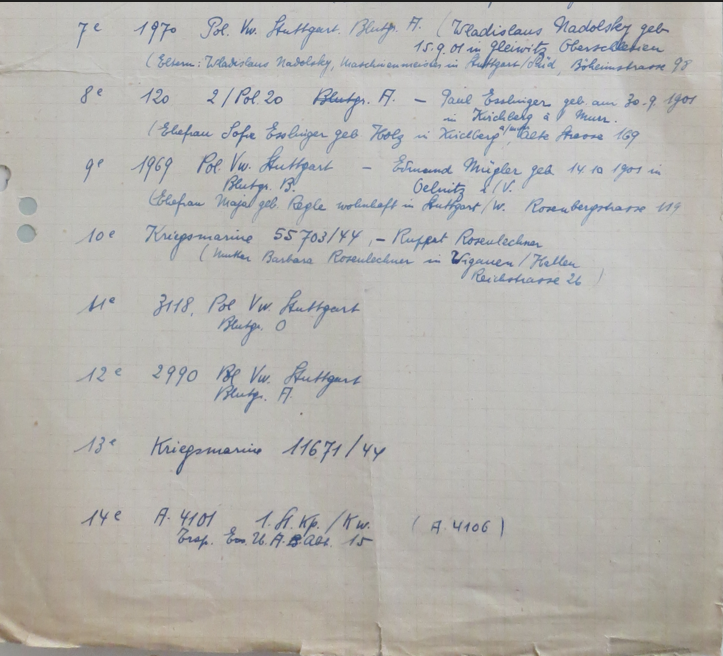 7e 1970 Pol. Vw. Stuttgart. Blutgr. A. (Wladislaus Nadolsky geb
15.9.01 in Gleiwitz Oberschlesien
(Eltern: Wladislaus Nadolsky, Maschinenmeister in Stuttgart/Süd, Böheimstrasse 98
8e 120 2/Pol. 20 Blutgr. A. – Paul Esslinger geb am 30.9.1901
in Kirchberg a Murr.
(Ehefrau Sofie Esslinger geb Holz in Kirchberg a/Murr, alte Strasse 169
9e 1969 Pol. Vw. Stuttgart – Edmund Mügler geb 14.10 1901 in
Blutgr. B. Oelsnitz i/V.
(Ehefrau Maja geb. Regle wohnhaft in Stuttgart/W. Rosenbergstrasse 119
10e Kriegsmarine 55703/44, – Ruppert Rosenlechner
(Mutter Barbara Rosenlechner in
Reichstrasse 26)
11e 3118, Pol Vw. Stuttgart
Blutgr. O
12e 2990 Pol Vw. Stuttgart
Blutgr. A.
13e Kriegsmarine 11671/44
14e A. 4101 1. St. Kp. /Kw. (A. 4106)
Ers. u. A. Abt. 15